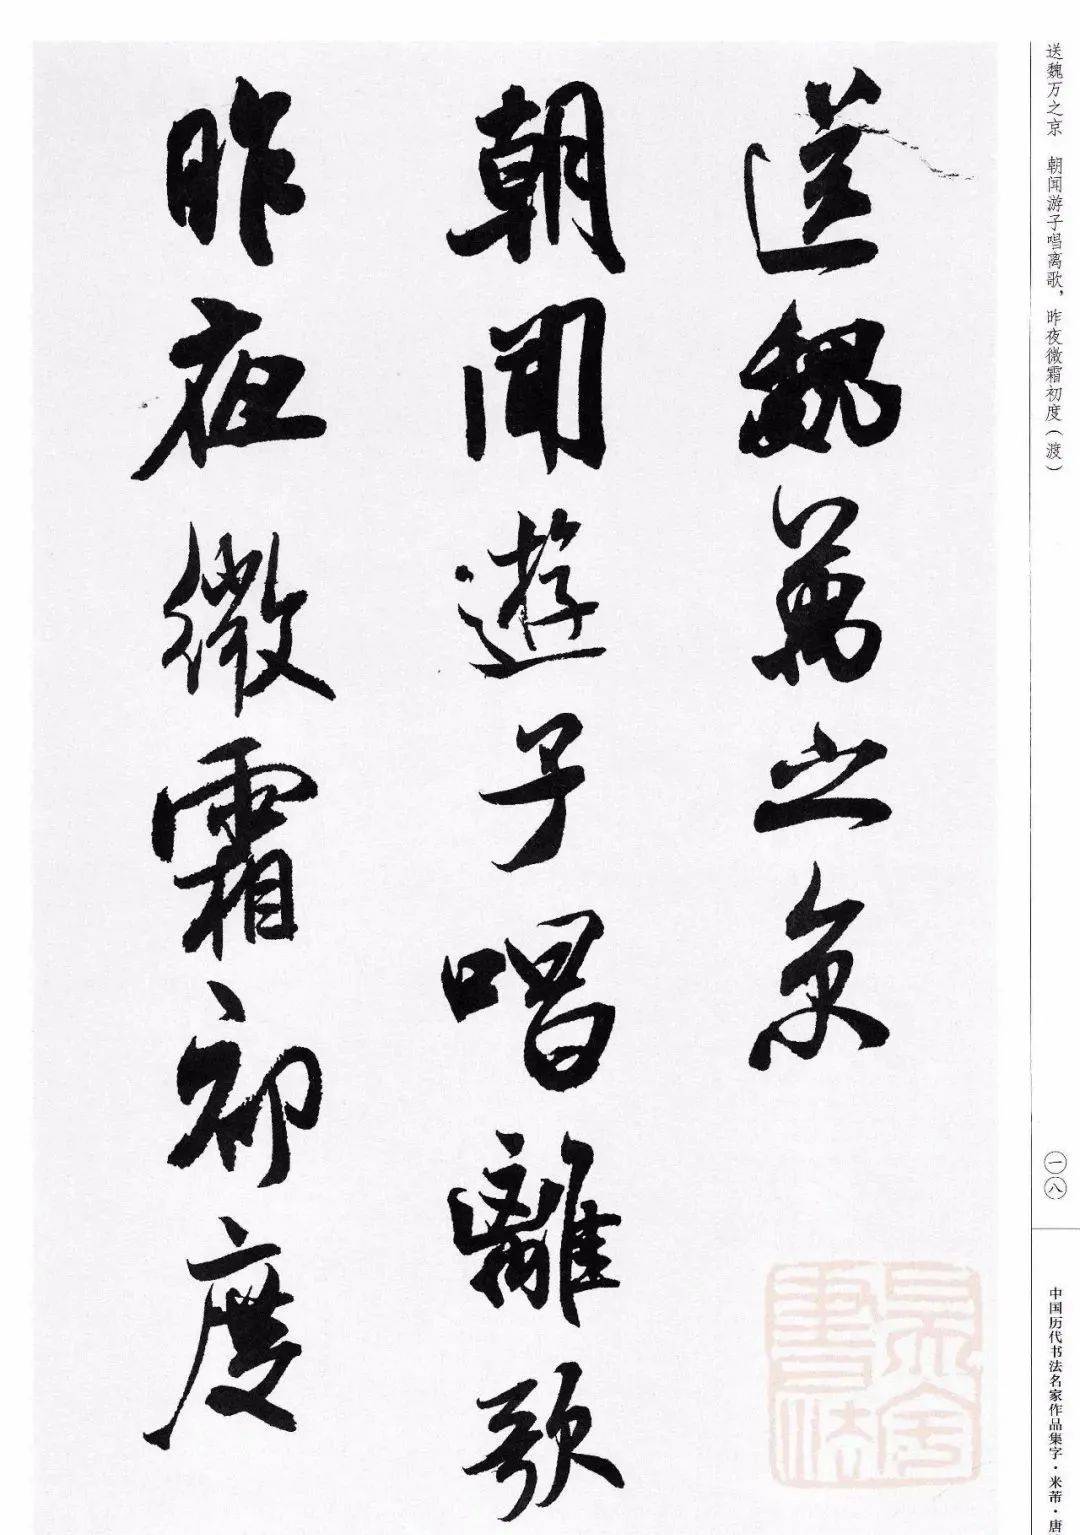 送魏萬之京
朝聞遊子唱離歌
昨夜微霜初度
送魏万之京　朝闻游子唱离歌，昨夜微霜初度（渡）
一八
中国历代书法名家作品集字·米芾·唐